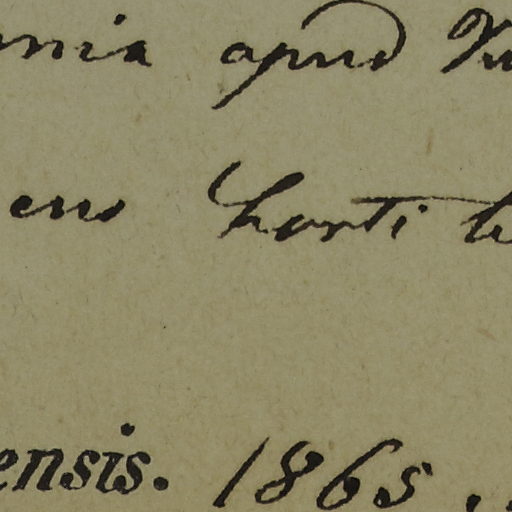 nnia apud
ens horti
ensis. 1865.